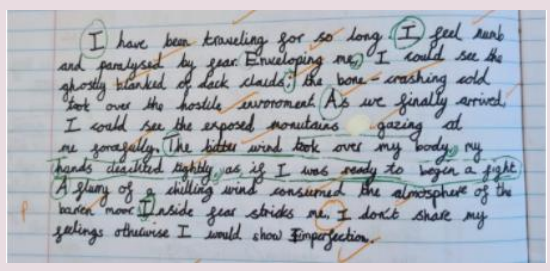 I have been traveling for so long. I feel numb
and paralysed by fear. Enveloping me, I could see the
ghostly blanked of dack clauds; the bone-crashing cold
took over the hostile envoroment. As we finally arrived,
I could see the exposed monutains gazing at
me . The bitter wind took over my body, my
hands tightly, as if I was ready to begen a fight.
A flury of a chilling wind consumed the atmosphere of the
P baren moor. Inside fear stricks me. I don't share my
feelings otherwise I would show imperfection.